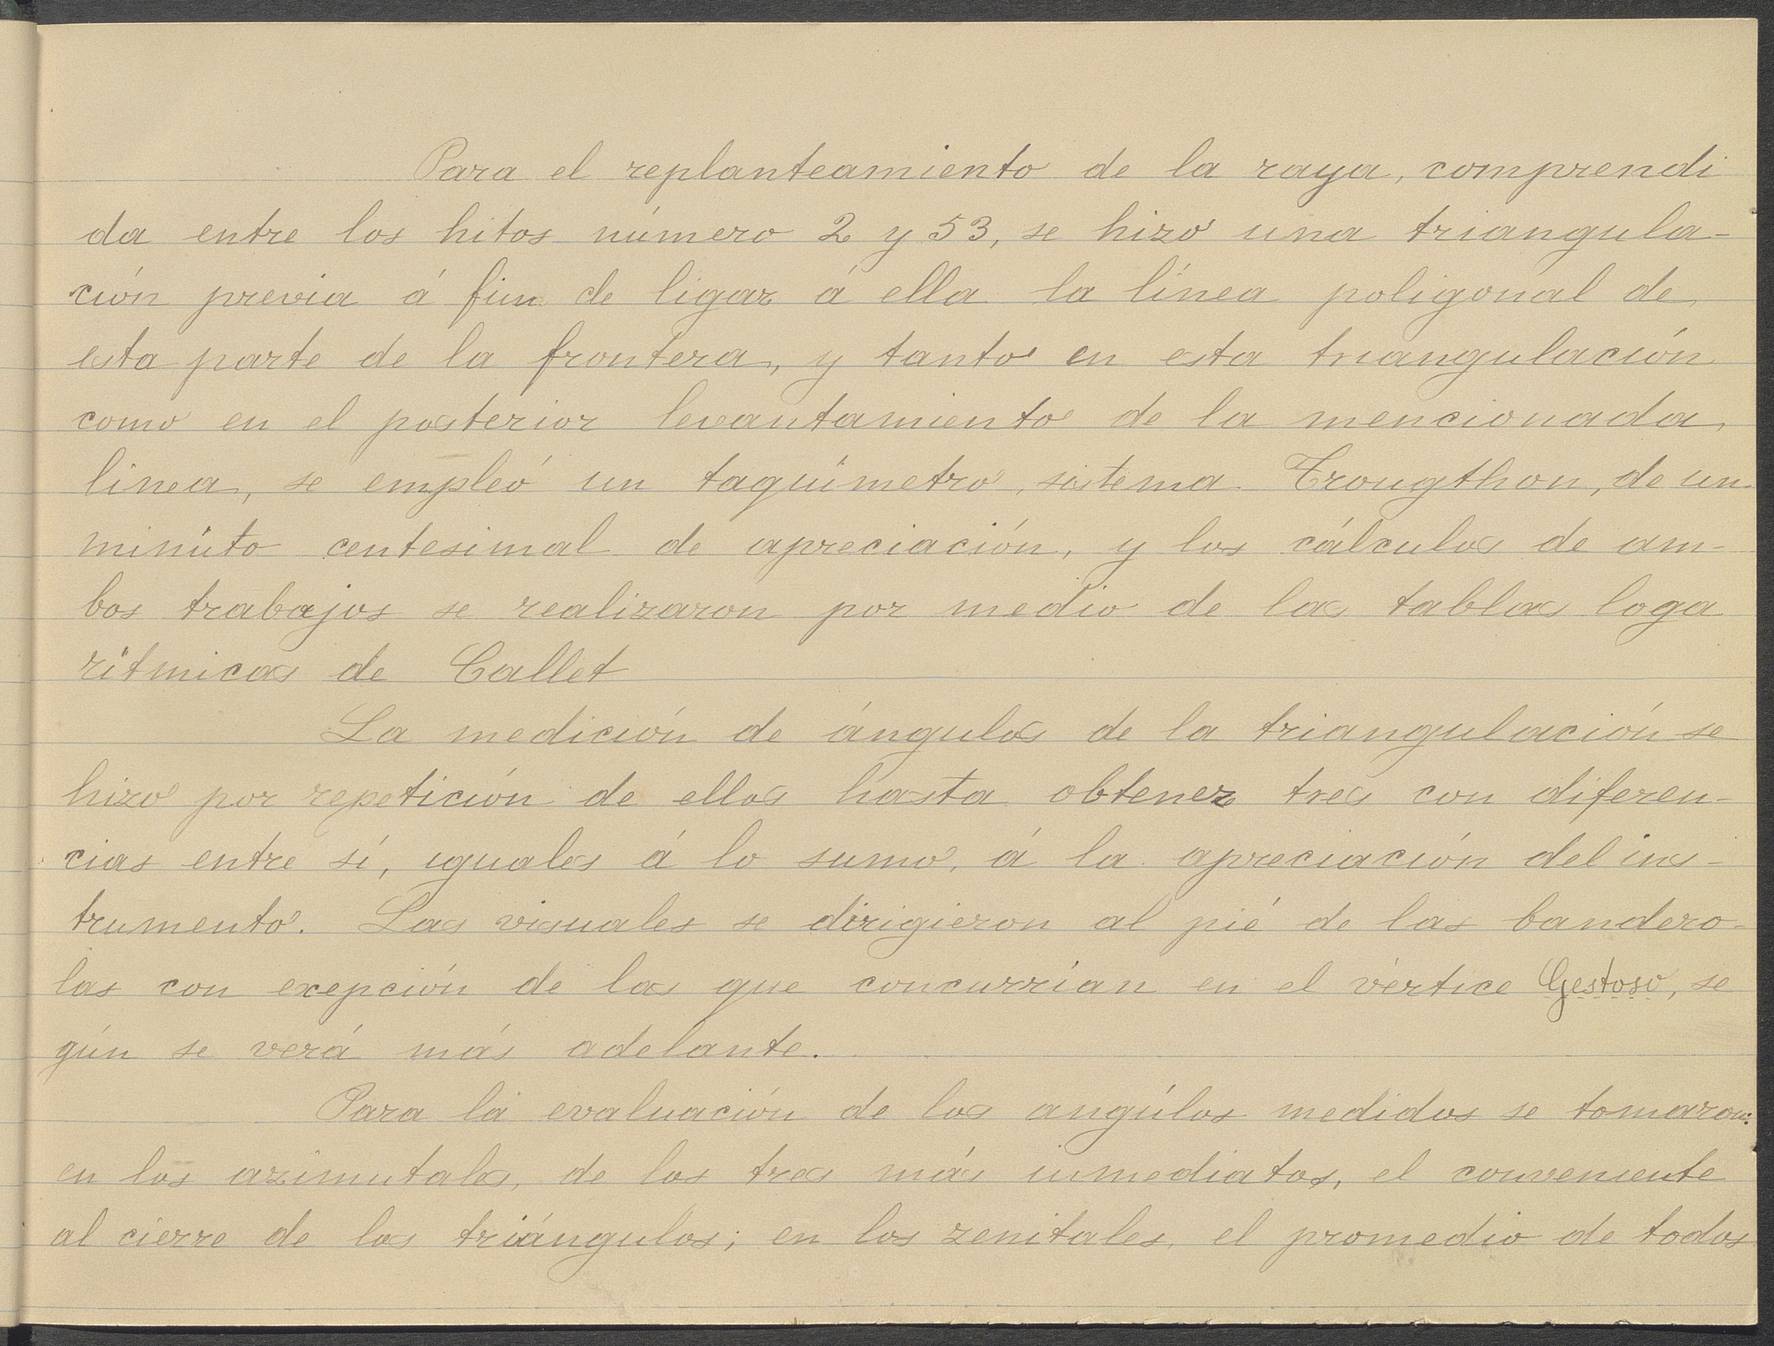 Para el replanteamiento de la raya, comprendi
da entre los hitos número 2 y 53, se hizo una triangula-
ción previa á fin de ligar á ella la línea poligonal de
esta parte de la frontera, y tanto en esta triangulación
como en el posterior levantamiento de la mencionada
linea, se empleó un taquímetro, sistema Trougthon, de un
minuto centesimal de apreciación, y los cálculos de am-
bos trabajos se realizaron por medio de las tablas loga
rítmicas de Callet
La medición de ángulos de la triangulación se
hizo por repetición de ellos hasta obtener tres con diferen-
cias entre sí, iguales á lo sumo, á la apreciación del ins-
trumento. Las visuales se dirigieron al pié de las bandero-
las con exepción de las que concurrían en el vértice Gestoso, se
gún se verá más adelante.
Para la evaluación de los angúlos medidos se tomaron:
en los azimutales, de los tres más inmediatos, el conveniente
al cierre de los triángulos; en los zenitales, el promedio de todos